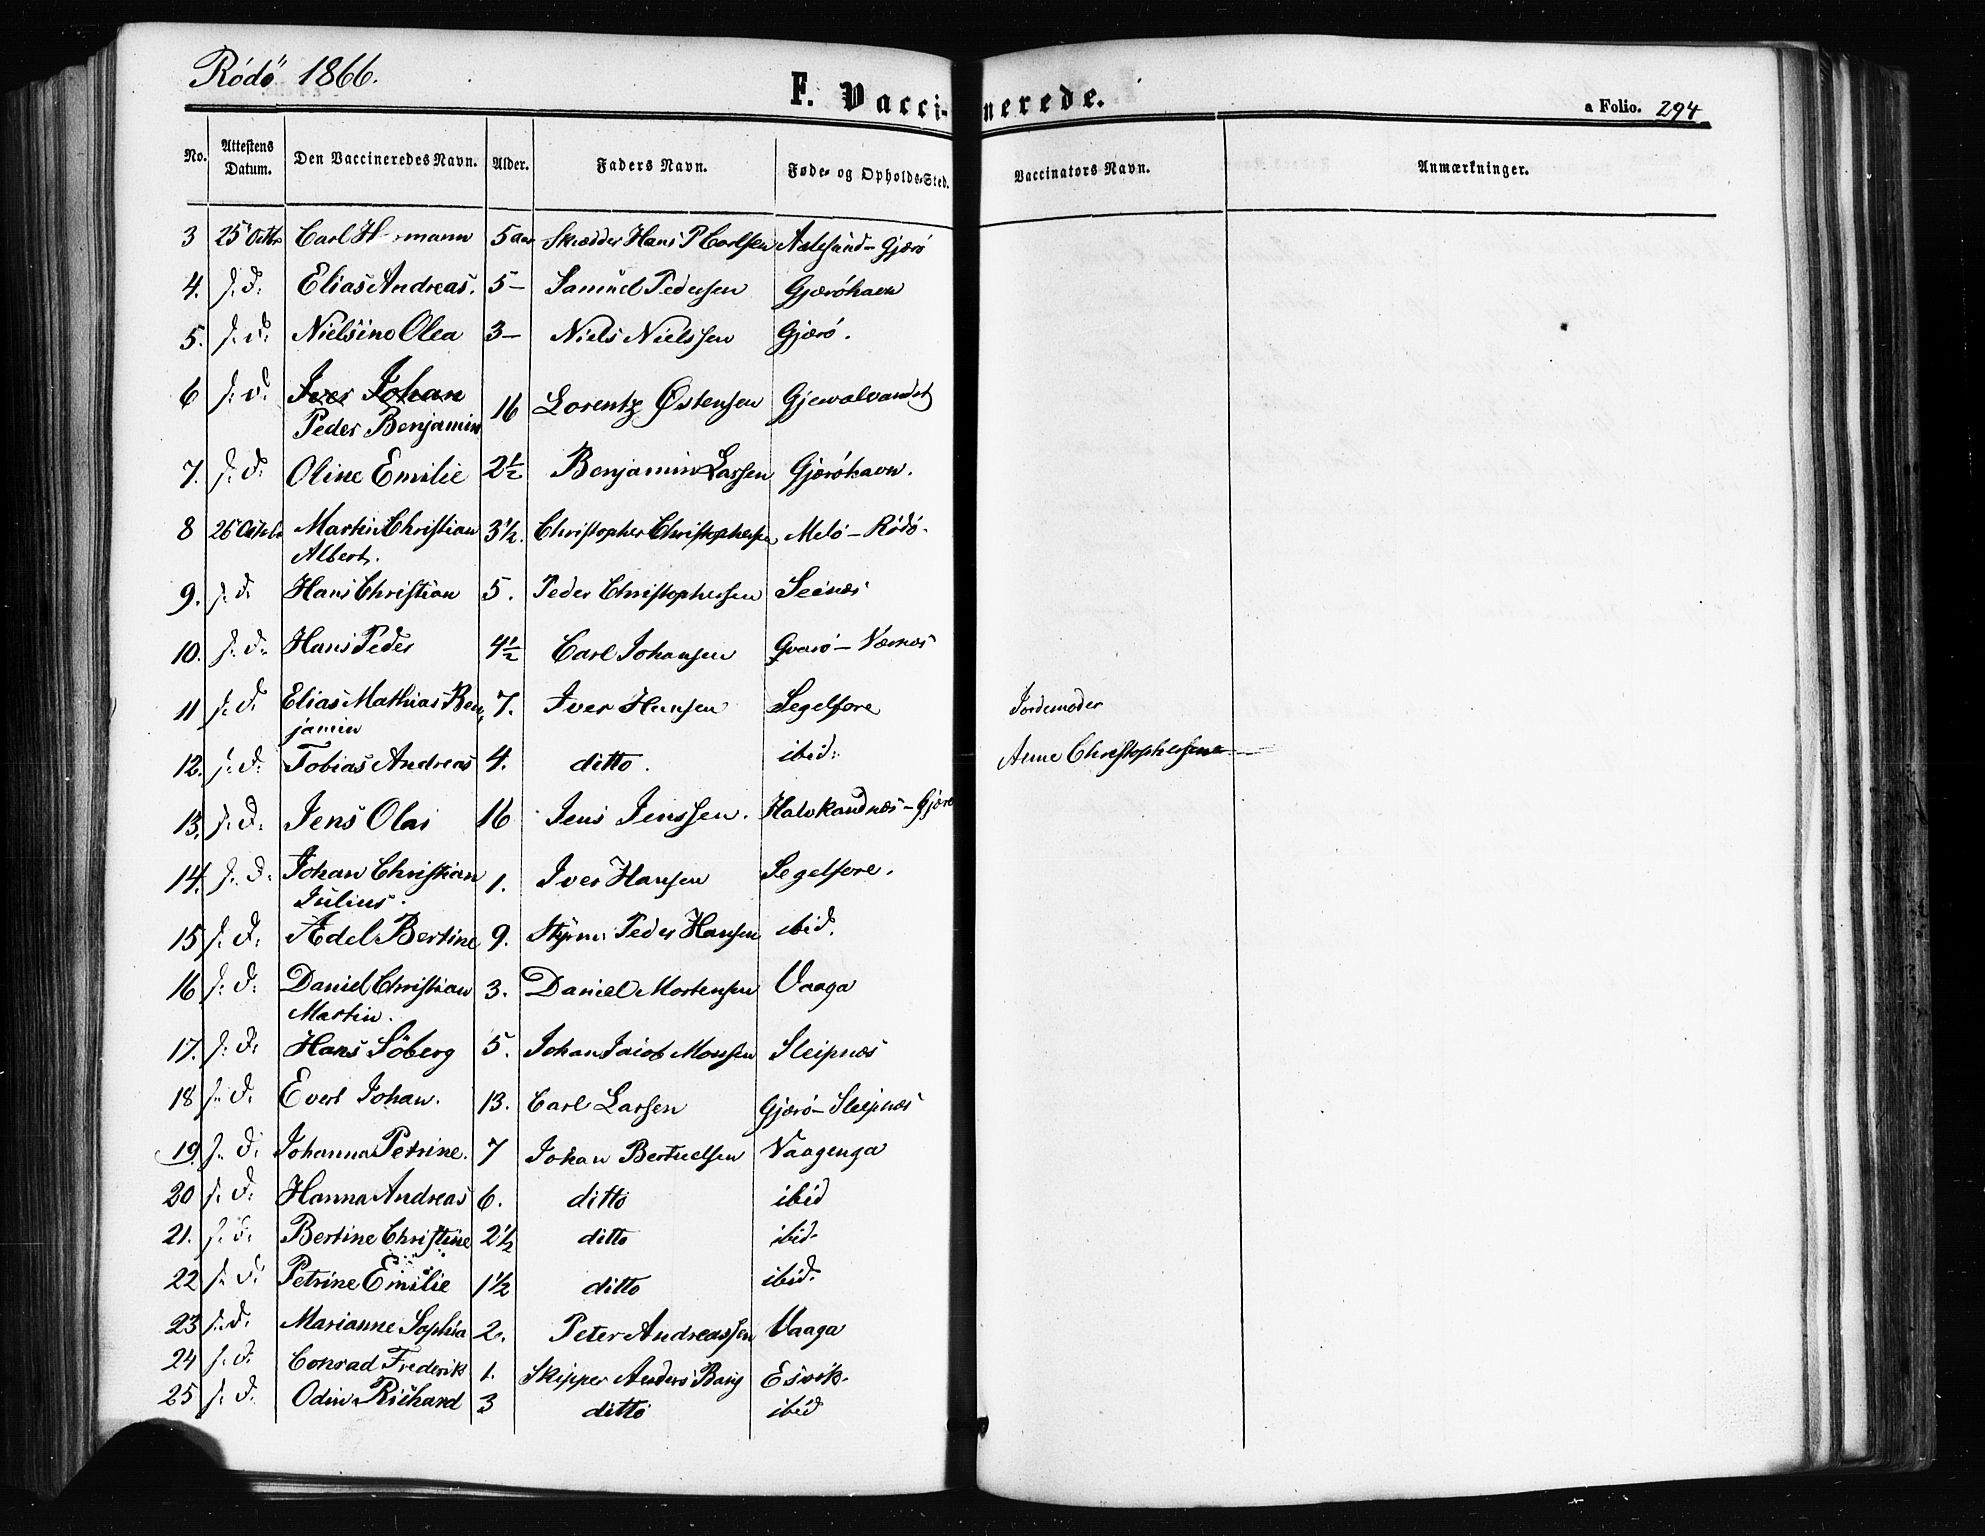 Rödö 1866.
F. Vaccinerede.
a Folio. 294
No. Attestens Datum. Den Vaccineredes Navn. Alder. Faders Navn. Føde- og Opholds-Sted. Vaccinators Navn. Anmærkninger.
3 25 Octbr Carl Hermann 5 aar Skrædder Hans P Carlsen Aalesund - Gjærö
4. s. d. Elias Andreas. 5 — Samuel Pedersen Gjæröhavn
5. s. d. Nielsine Olea 3 — Niels Nielssen Gjærö.
6 s. d. Iver Johan
Peder Benjamin 16 Lorentz Østensen Gjervalvandet
7. s. d. Oline Emilie 2½ Benjamin Larsen Gjæröhavn.
8 26 Octobr Martin Christian 3½. Christopher Christophersen Melö - Rödö.
Albert.
9. s. d. Hans Christian 5. Peder Christophersen Seines
10. s. d. Hans Peder 4½ Carl Johansen Qvarö - Værnes
11 s. d. Elias Mathias Ben 7. Iver Hansen Segelfore Jordemoder
jamin
12. s. d. Tobias Andreas 4. ditto. ibid: Anne Christophersen
13. s. d. Jens Olai 16 Jens Jenssen. Halskandnæs - Gjærö
14. s. d. Johan Christian 1. Iver Hansen Segelfore.
Julius.
15 s. d. Adel Bertine 9. Styrm: Peder Hansen ibid.
16 s. d. Daniel Christian 3. Daniel Mortensen Vaaga
Martin.
17. s. d. Hans Söberg 5. Johan Jacob Monsen Sleipnæs
18 s. d. Evert Johan. 13. Carl Larsen Gjærö - Sleipnæs
19. s. d. Johanna Petrine. 7 Johan Bertuelsen Vaagenga
20 s. d. Hanna Andreas 6. ditto ibid
21. s. d. Bertine Christine 2½ ditto ibid.
22 s. d. Petrine Emilie 1½ ditto ibid.
23 s. d. Marianne Sophia 2. Peter Andreassen Vaaga
24 s. d. Conrad Frederik 1. Skipper Anders Bang Esvik.
25 s. d. Odin Richard 3 ditto ibid